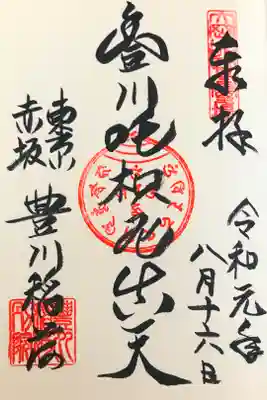 奉拝
令和元年
八月十六日
豊川吒枳尼真天
東京
赤坂
豊川稲荷